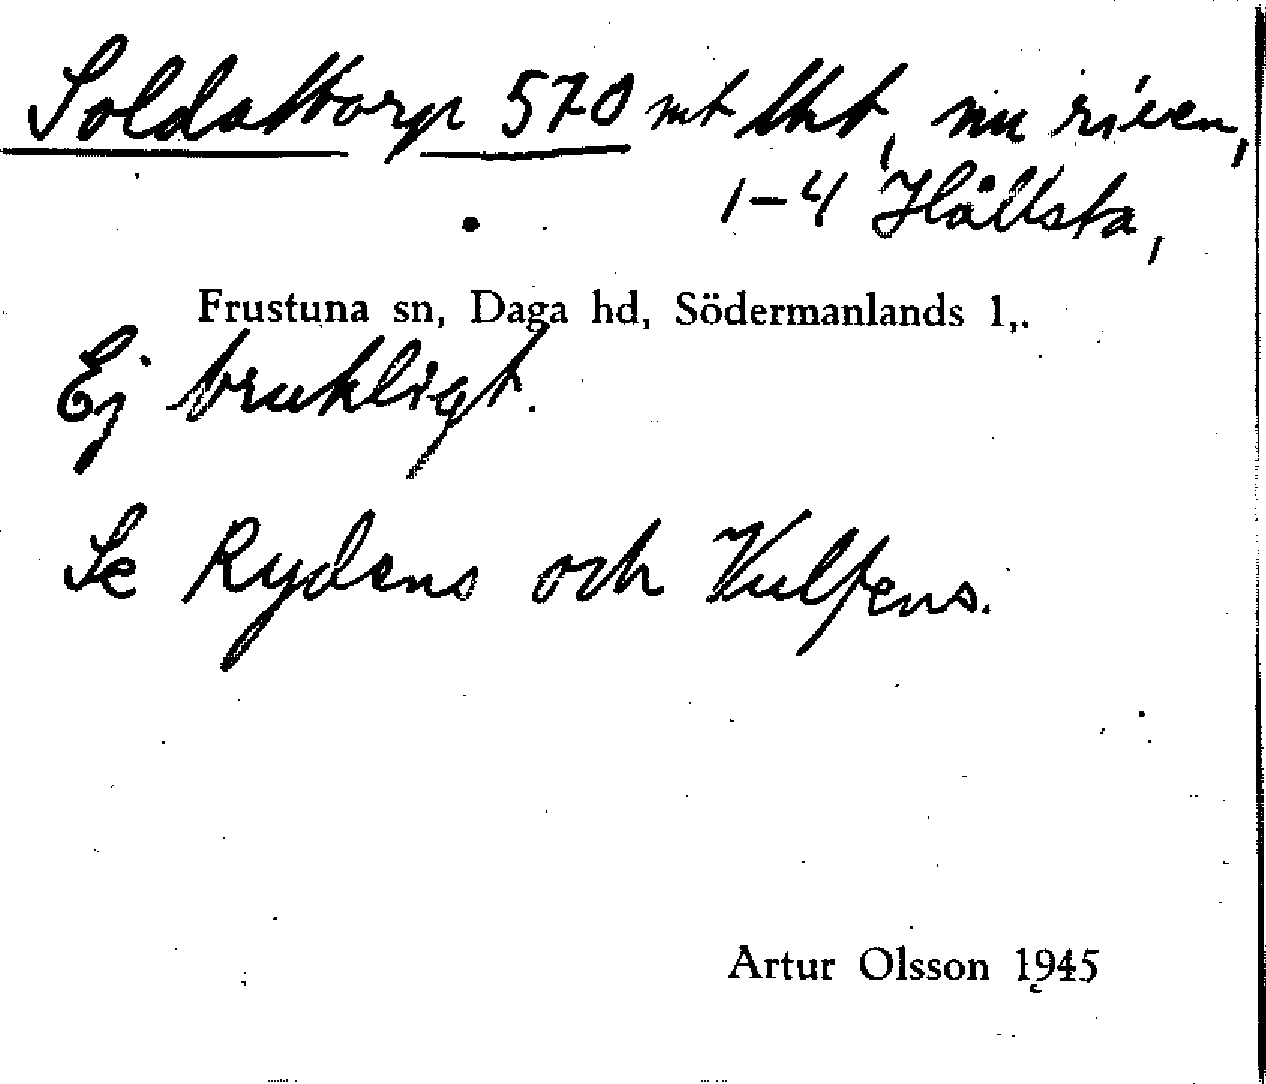 Soldattorp 570 mt lht, nu riven,
1-4 Hållsta,
Frustuna sn, Daga hd, Södermanlands l,.
Ej brukligt.
Se Rydens och Vulfens.
Artur Olsson 1945